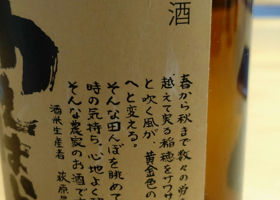 酒
春から秋まで数々の労
越えて実る稲穂をサワサワ
と吹く風が、黄金色の
へと変える。
そんな田んぼを眺めて
時の気持ち、心地よく
そんな農家のお酒で
酒米生産者 萩原